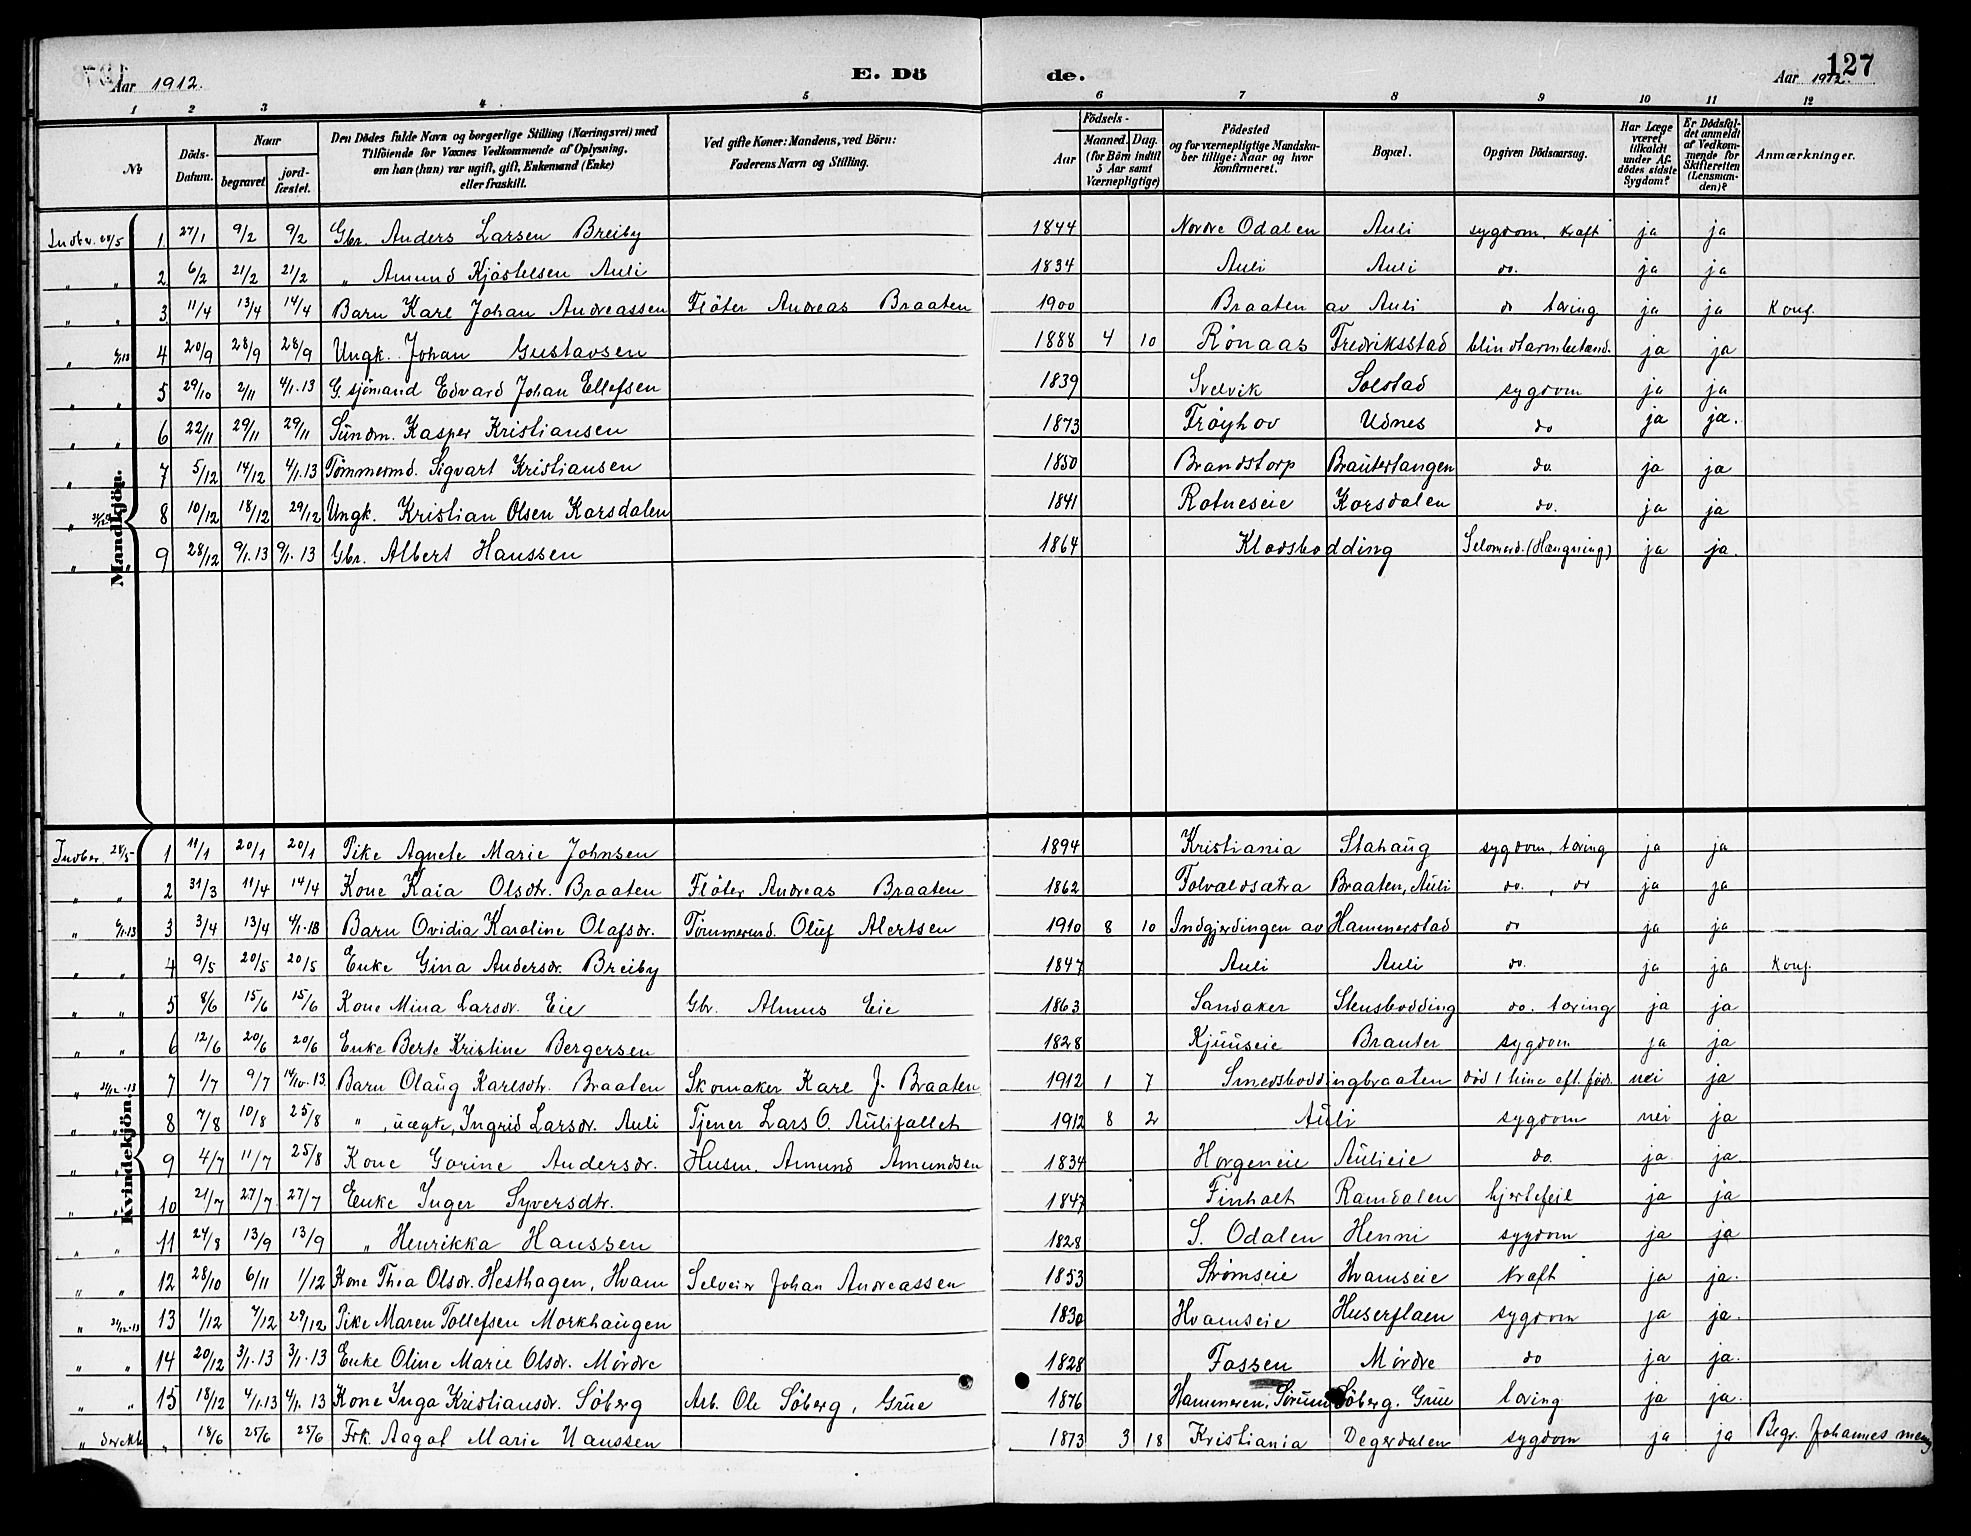 Aar 1912. E. Dö de. Aar 1912. 127
1 2 3 4 5 6 7 8 9 10 11 12
No
Döds-Datum.
Naar
begravet
jord-fæstet.
Den Dödes fulde Navn og borgerlige Stilling (Næringsvei) med Tilföiende for Voxnes Vedkommende af Oplysning, om han (hun) var ugift, gift, Enkemand (Enke) eller fraskilt.
Ved gifte Koner: Mandens, ved Börn: Faderens Navn og Stilling.
Födsels-
Aar
Maaned. Dag.
(for Börn indtil 5 Aar samt Værnepligtige)
Födested og for værnepligtige Mandskaber tillige: Naar og hvor konfirmeret.
Bopæl.
Opgiven Dödsaarsag.
Har Læge været tilkaldt under Afdödes sidste Sygdom?
Er Dödsfaldet anmeldt af Vedkommende for Skifteretten (Lensmanden)?
Anmærkninger.
Mandkjön.
Indber. 28/5 1 27/1 9/2 9/2 Gbr. Anders Larsen Breiby 1844 Nordre Odalen Auli sygdom, kraft ja ja
" " 2 6/2 21/2 21/2 " Amund Kjöstelsen Auli 1834 Auli Auli do. ja ja
" " 3 11/4 13/4 14/4 Barn Karl Johan Andreassen Flöter Andreas Braaten 1900 Braaten av Auli do tæring ja ja Konf.
" 4 20/9 28/9 28/9 Ungk. Johan Gustavsen 1888 4 10 Rönaas Fredriksstad blindtarmbetænd. ja ja
" " 5 29/10 2/11 4/1.13 G. sjömand Edvard Johan Ellefsen 1839 Svelvik Solstad sygdom ja ja
" " 6 22/11 29/11 29/11 Kasper Kristiansen 1873 Fröyhov Udnes do ja ja.
" 7 5/12 14/12 4/1.13 Tömmermd. Sigvart Kristiansen 1850 Brandstorp Brautertangen do. ja ja
" 8 10/12 18/12 29/12 Ungk. Kristian Olsen Korsdalen 1841 Rotneseie Korsdalen do. ja ja
" " 9 28/12 9/1.13 9/1.13 Gbr. Albert Hanssen 1864 Klodsbodding Selvmord. (Hængning) ja ja.
Kvindekjön.
Indber. 28/5 1 11/1 20/1 20/1 Pike Agnete Marie Johnsen 1894 Kristiania Stahaug sygdom, tæring ja ja
" " 2 31/3 11/4 14/4 Kone Kaia Olsdtr. Braaten Flöter Andreas Braaten 1862 Tolvaldsætra Braaten, Auli do. , do ja ja
" 6/1.13 3 3/4 13/4 4/1.13 Barn Ovidia Karoline Olafsdr. Tömmermd. Oluf Alertsen 1910 8 10 Indgjerdingen av Hammerstad do ja ja
" " 4 9/5 20/5 20/5 Enke Gina Andersdr. Breiby 1847 Auli Auli do. ja ja Konf.
" " 5 8/6 15/6 15/6 Kone Mina Larsdr. Eie Gbr. Almus Eie 1863 Sandaker Stensbodding do. tæring ja ja
" " 6 12/6 20/6 20/6 Enke Berte Kristine Bergersen 1828 Kjuuseie Brauter sygdom ja ja
" 31/12.13 7 1/7 9/7 14/10.13. Barn Olaug Karlsdtr. Braaten Skomaker Karl J. Braaten 1912 1 7 Smedsboddingbraaten död 1 time eft. föds. nei ja
" " 8 7/8 10/8 25/8 " , uægte, Ingrid Larsdr. Auli Tjener Lars O. Aulifallet 1912 8 2 Auli sygdom nei ja
" 9 4/7 11/7 25/8 Kone Gorine Andersdr. Husm. Amund Amundsen 1834 Horgeneie Aulieie do. ja. ja.
" " 10 21/7 27/7 27/7 Enke Inger Syversdtr. 1847 Finholt Ramdalen hjertefeil ja ja
" " 11 24/8 13/9 13/9 " Henrikka Hanssen 1828 S. Odalen Henni sygdom ja ja
" " 12 28/10 6/11 1/12 Kone Thea Olsdr. Hesthagen, Hvam Selveier Johan Andreassen 1853 Strömseie Hvamseie Kraft ja ja.
" 31/12.13 13 1/12 7/12 29/12 Pike Maren Tollefsen Morkhaugen 1830 Hvamseie Huserflaen sygdom ja ja.
" " 14 20/12 3/1.13 3/1.13 Enke Oline Marie Olsdr. Mördre 1828 Fossen Mördre do ja ja.
" " 15 18/12 4/1.13 4/1.13 Kone Inga Kristiansdr. Söberg Arb. Ole Söberg, Grue 1876 Hammeren, Sörum Söberg. Grue tæring ja ja.
" direkte " 18/6 25/6 25/6 Frk. Aagot Marie Hanssen 1873 3 18 Kristiania Degerdalen sygdom ja ja Begr. Johannes menig